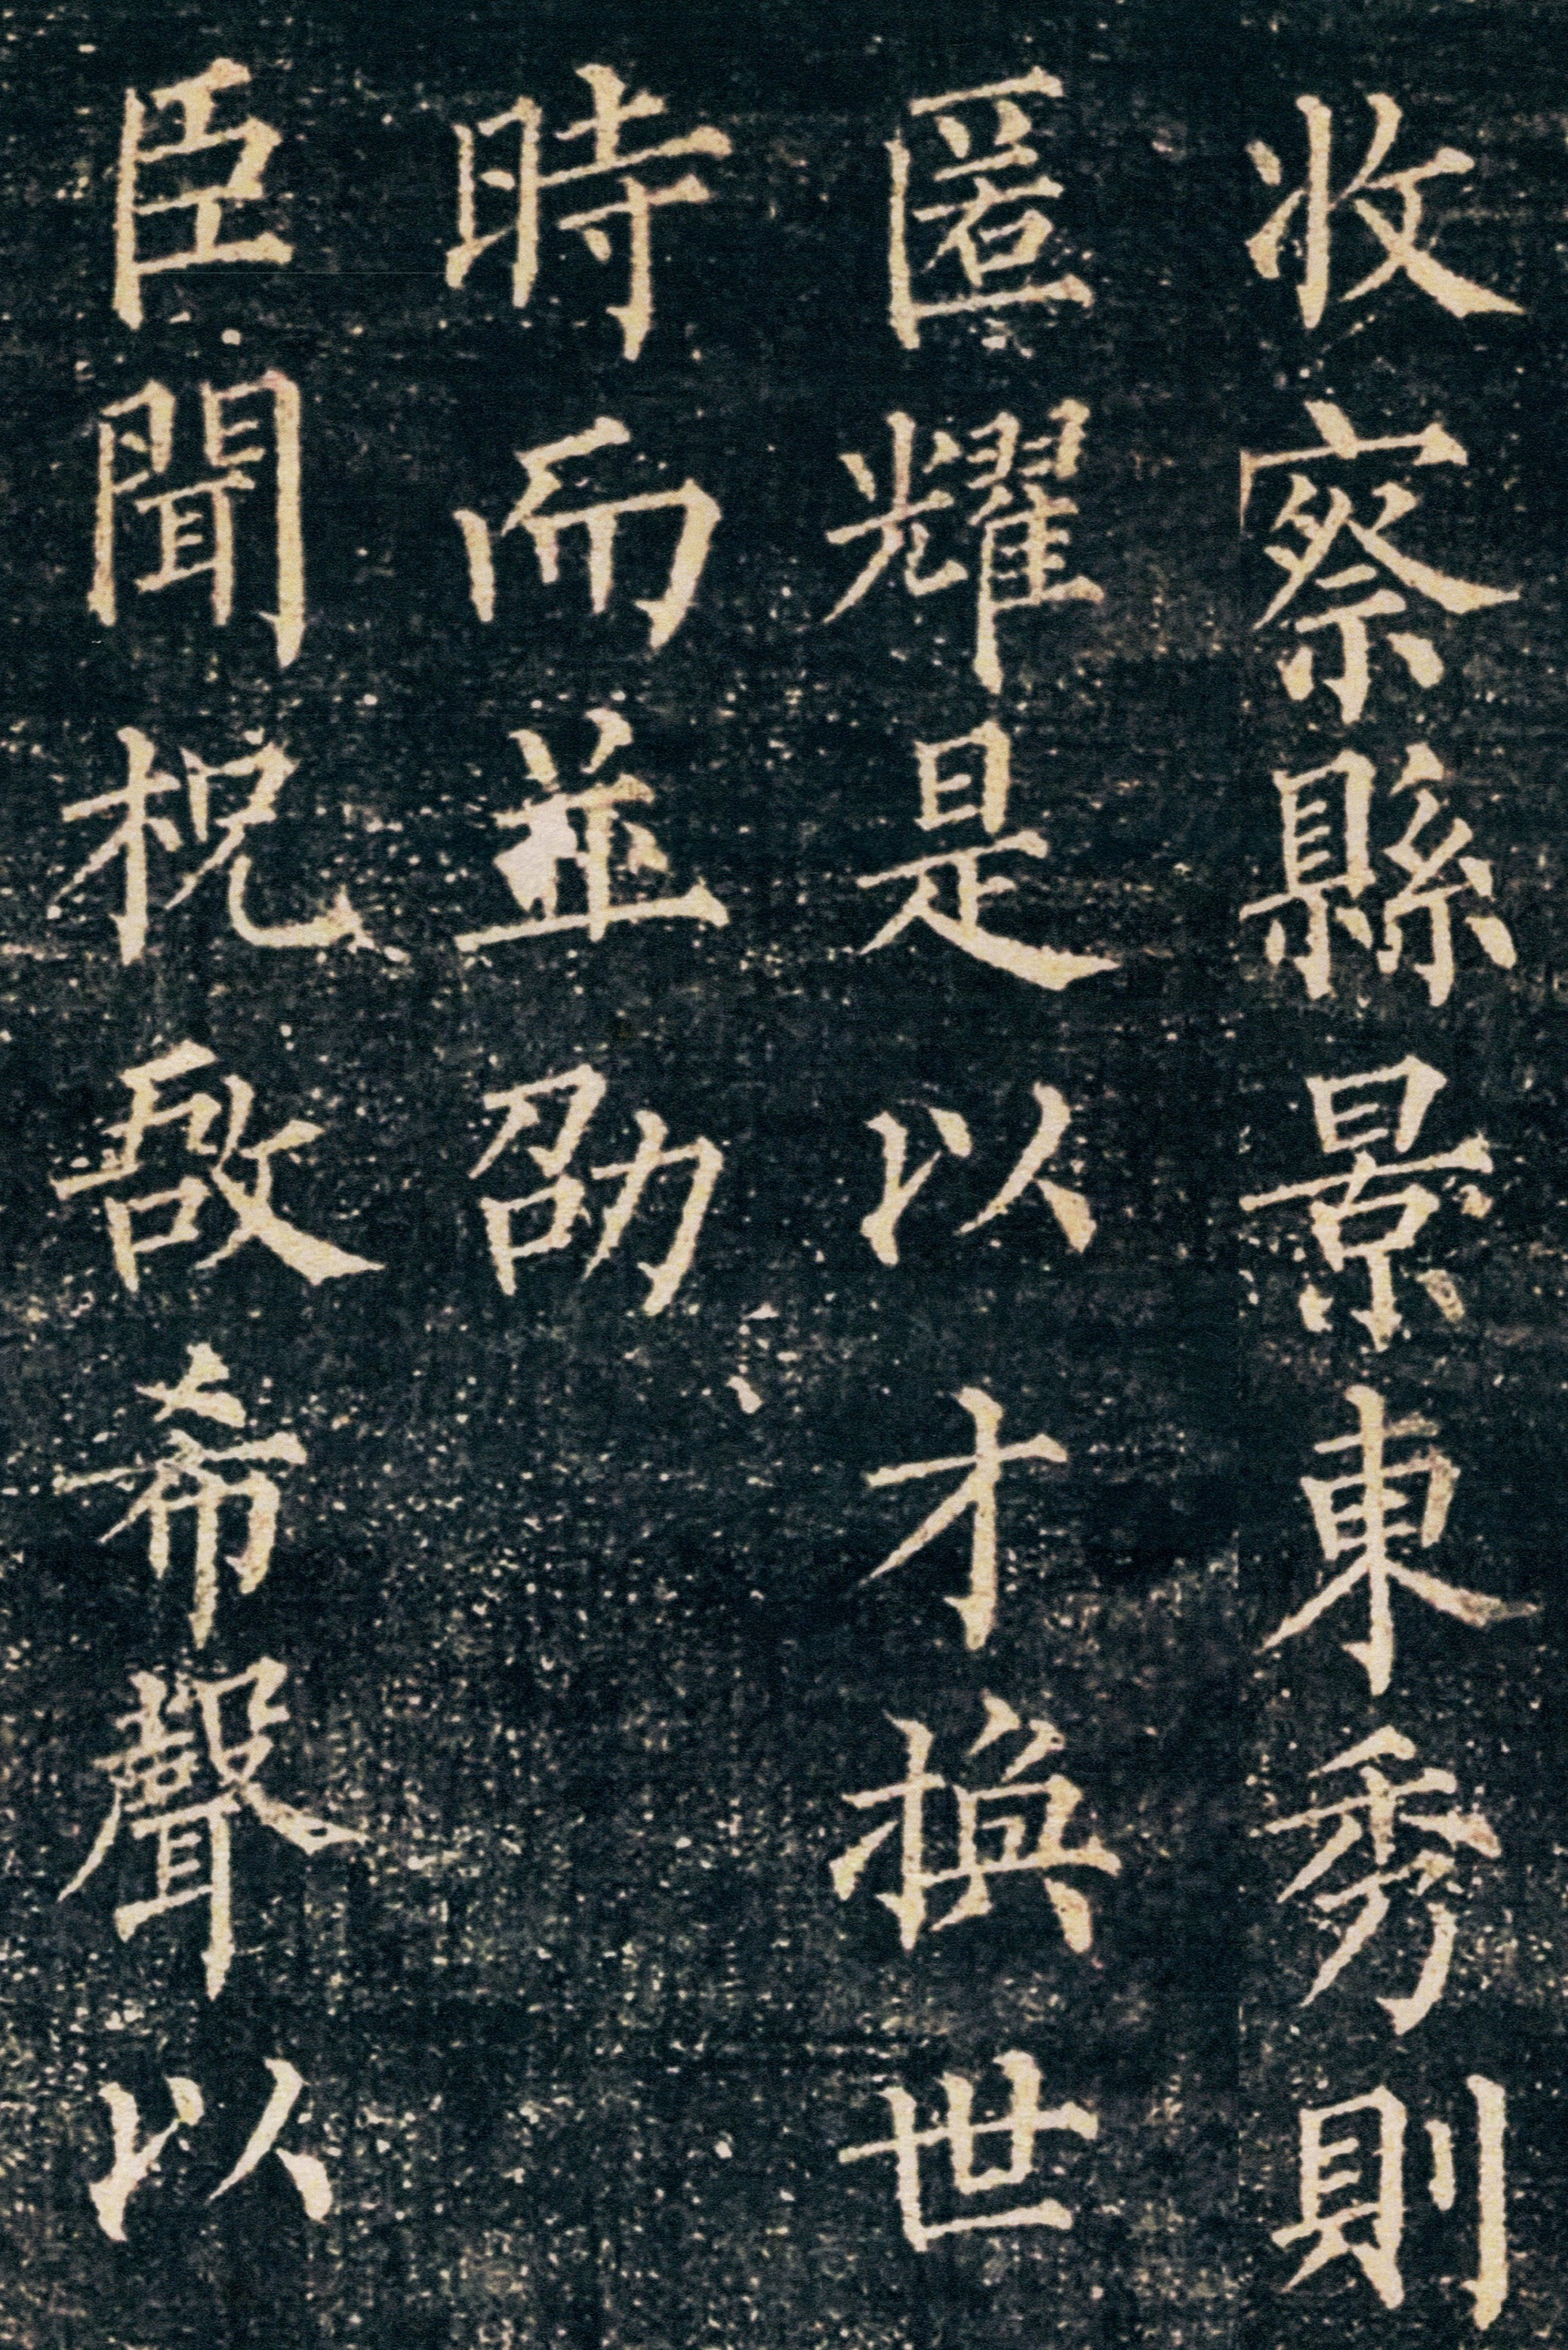 收察縣景東秀則
匿耀是以才換世
時而並劭
臣聞柷敔希聲以